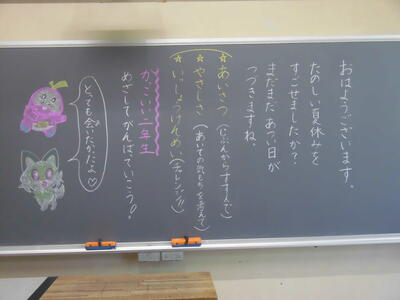 おはようございます。
たのしい夏休みを
すごせましたか？
まだまだあつい日が
つづきますね。
☆あいさつ（じぶんからすすんで）
☆やさしさ（あいての気もちを考えて）
☆いっしょうけんめい（チャレンジ!!）
かっこいい二年生
めざしてがんばっていこう！
とっても会いたかったよ♡